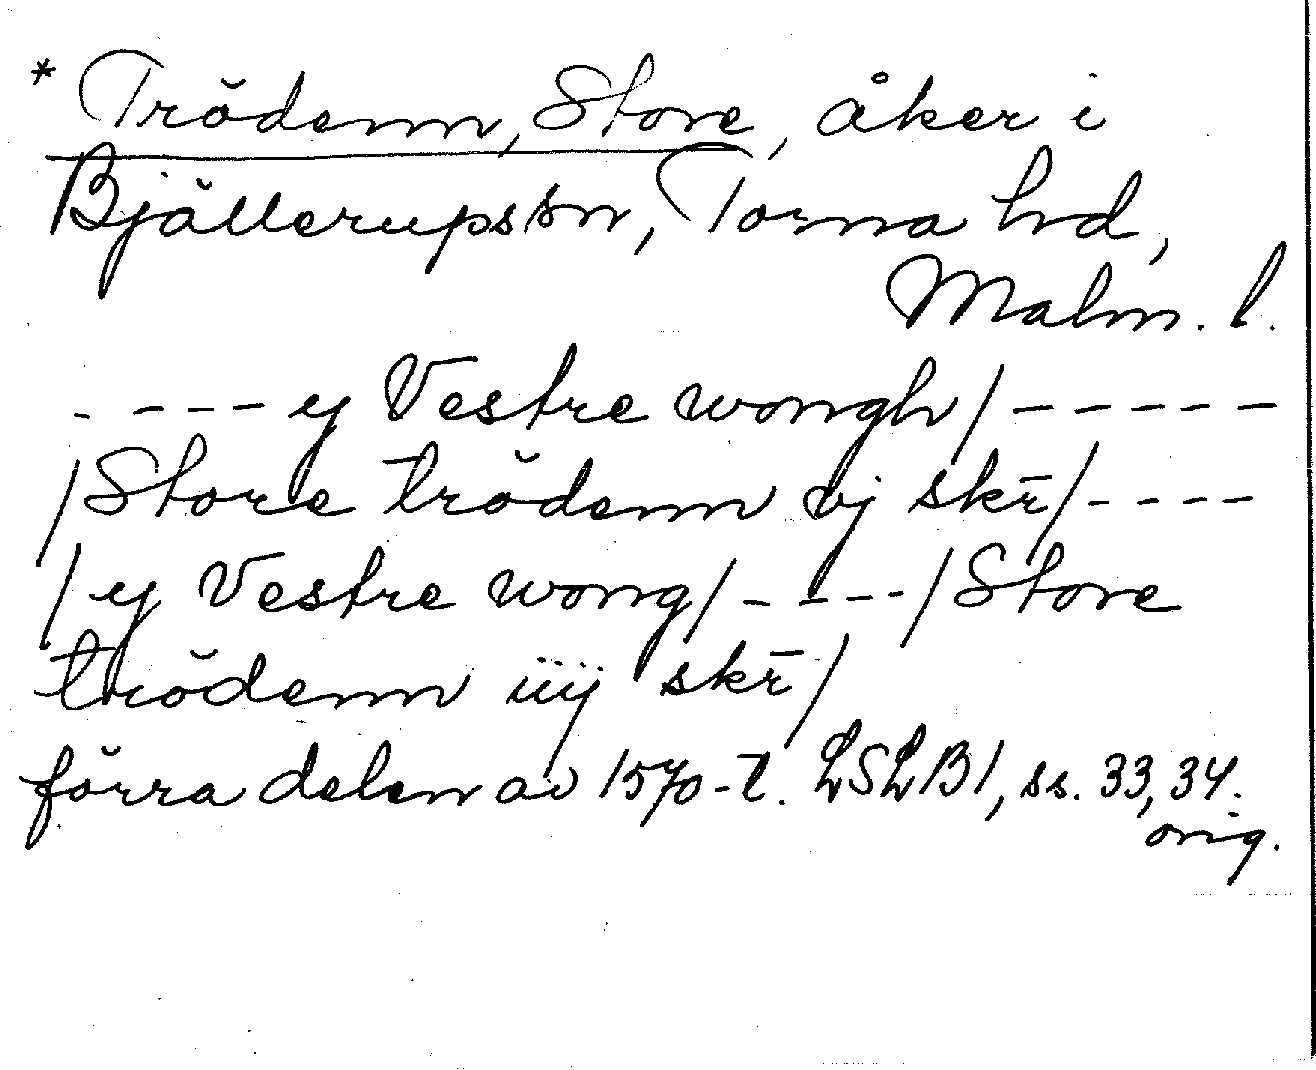 * Trödenn, Store, åker i
Bjällerups sn, Torna hd,
Malm. l.
- - - - - y Vestre wongh / - - - - -
/ Store trödenn vj skr̄ / - - - -
/ y Vestre wong / - - - - / Store
trödenn iiij skr̄ /
förra delen av 1570-t. LSLB1, ss. 33, 34.
orig.